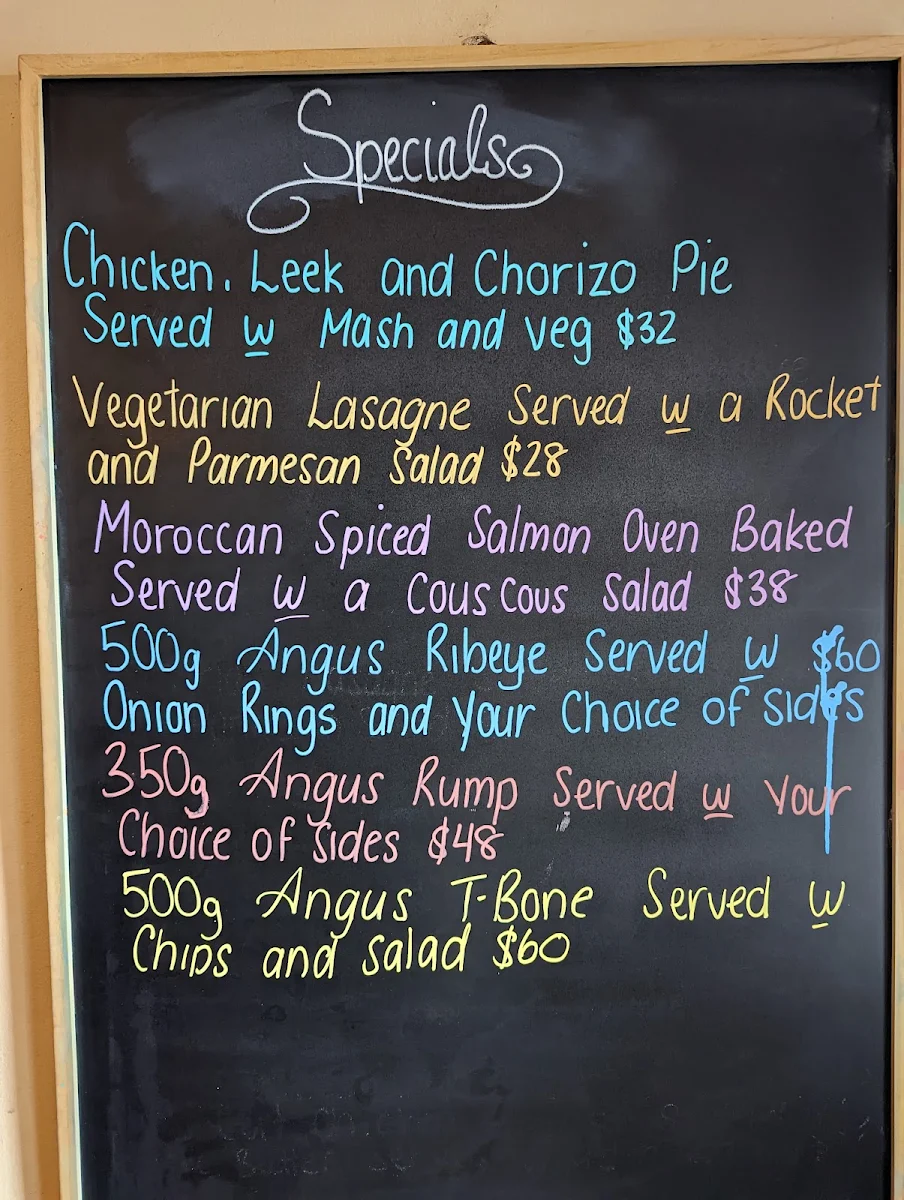 Specials
Chicken. Leek and Chorizo Pie
Served w Mash and veg $32
Vegetarian Lasagne Served w a Rocket
and Parmesan Salad $28
Moroccan Spiced Salmon Oven Baked
Served w a Cous Cous Salad $38
500g Angus Ribeye Served w $60
Onion Rings and Your Choice of Sides
350g Angus Rump Served w Your
Choice of Sides $48
500g Angus T-Bone Served w
Chips and Salad $60